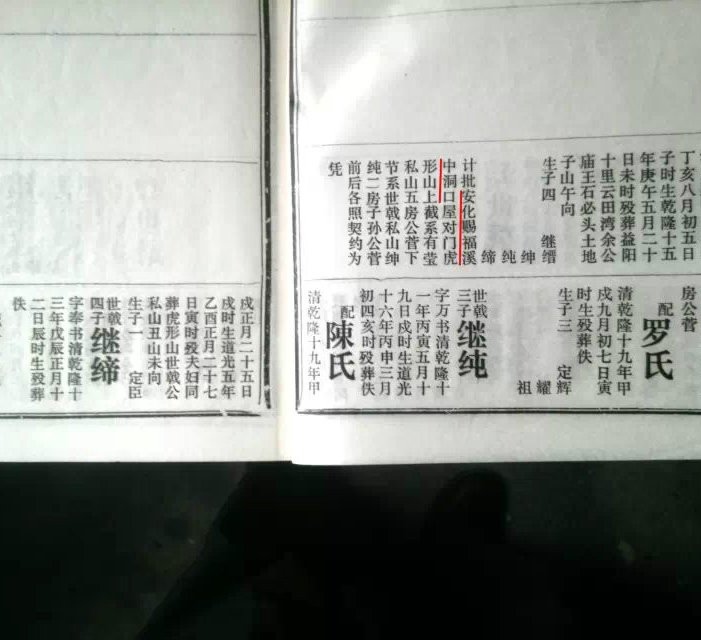 丁亥八月初五日
子时生乾隆十五
年庚午五月二十
日未时殁葬益阳
十里云田湾余公
庙王石必头土地
子山午向
生子四 继缙
绅
纯
缔
计批安化赐福溪
中洞口屋对门虎
形山上截系有莹
私山五房公营下
节系世戟私山绅
纯二房子孙公营
前后各照契约为
凭
房公营
配
罗氏
清乾隆十九年甲
戌九月初七日寅
时生殁葬佚
生子三 定辉
耀
祖
世戟
三子
继纯
字万书清乾隆十
一年丙寅五月十
九日戌时生道光
十六年丙申三月
初四亥时殁葬佚
配
陳氏
清乾隆十九年甲
戌正月二十五日
戌时生道光五年
乙酉正月二十七
日寅时殁夫妇同
葬虎形山世戟公
私山丑山未向
生子一 定臣
世戟
四子
继缔
字奉书清乾隆十
三年戊辰正月十
二日辰时生殁葬
佚